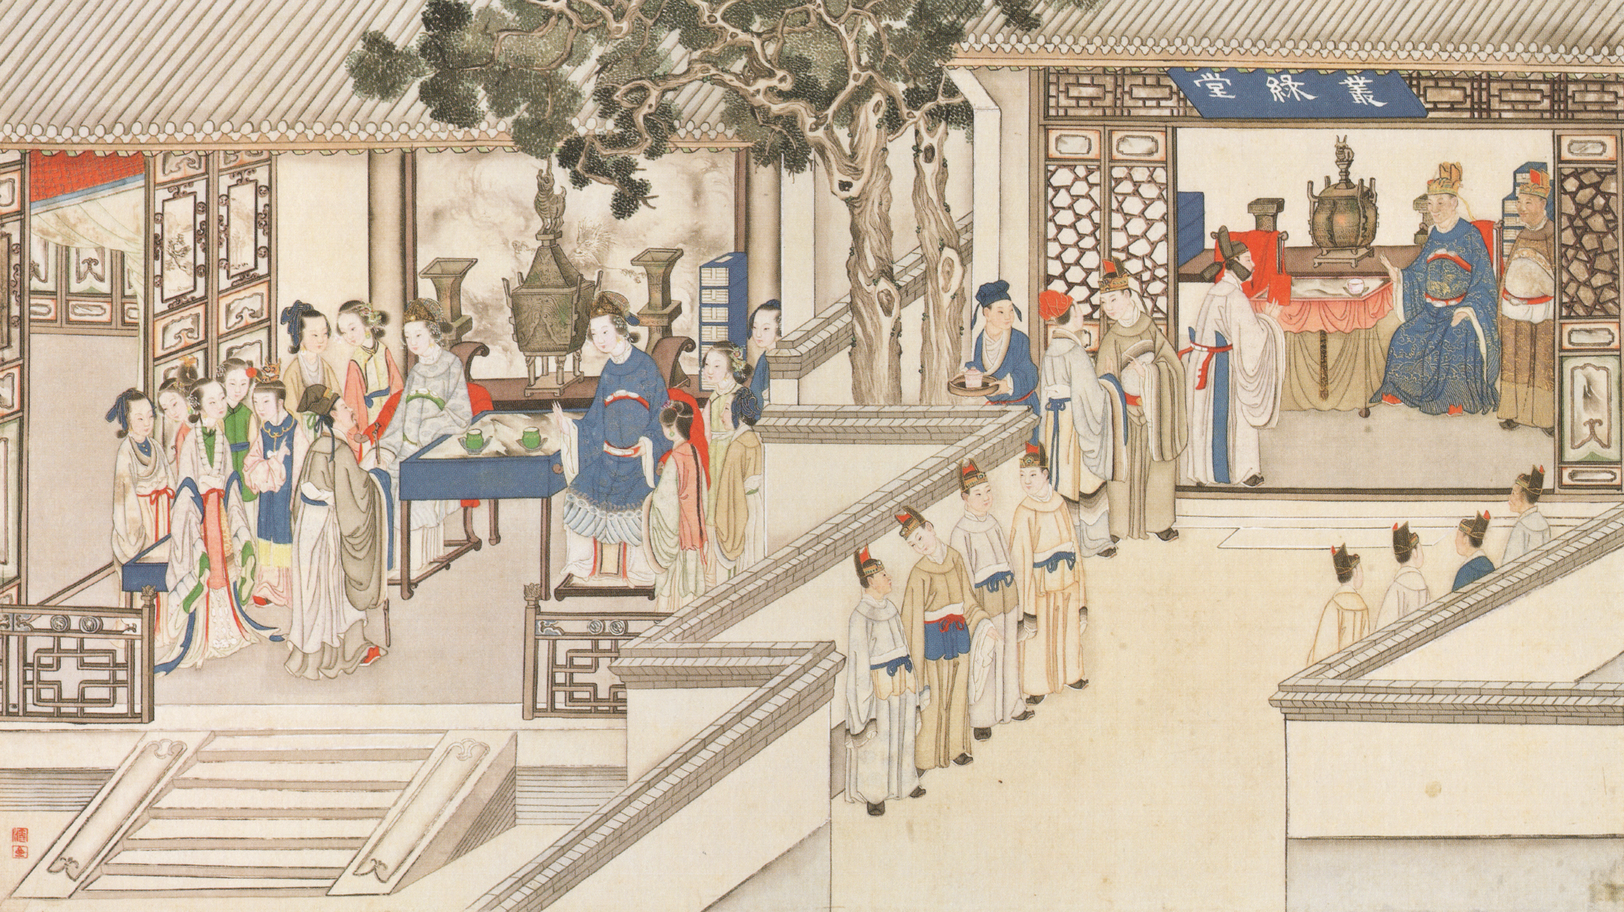 叢綠堂